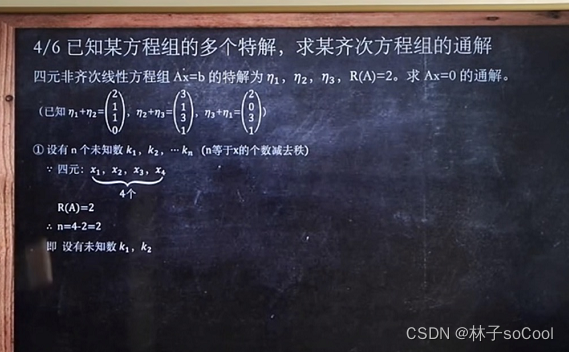 4/6 已知某方程组的多个特解，求某齐次方程组的通解
四元非齐次线性方程组 Ax=b 的特解为 η₁，η₂，η₃，R(A)=2。求 Ax=0 的通解。
（已知 η₁+η₂=(2 1 1 0)，η₂+η₃=(3 1 3 1)，η₃+η₁=(2 0 3 1)）
① 设有 n 个未知数 k₁，k₂，⋯kₙ（n等于x的个数减去秩）
∵ 四元：x₁，x₂，x₃，x₄
4个
R(A)=2
∴ n=4-2=2
即 设有未知数 k₁，k₂
CSDN @林子soCool